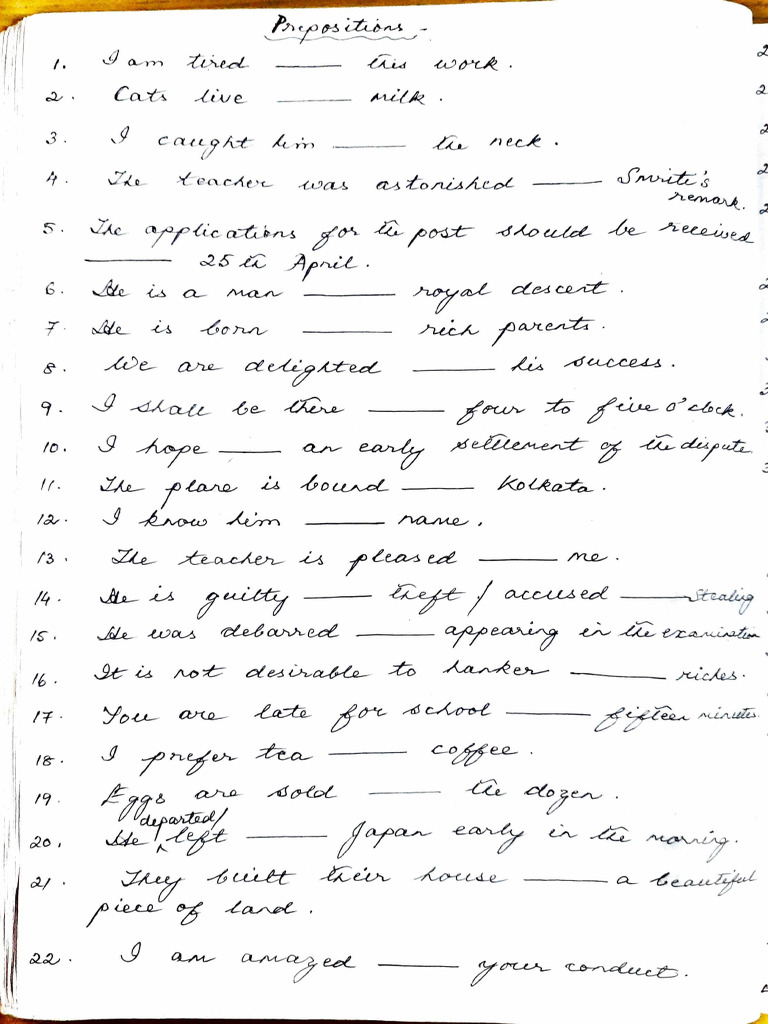 Prepositions -
1. I am tired _____ this work.
2. Cats live _____ milk.
3. I caught him _____ the neck.
4. The teacher was astonished _____ Smriti's
remark.
5. The applications for the post should be received
_____ 25th April.
6. He is a man _____ royal descent.
7. He is born _____ rich parents.
8. We are delighted _____ his success.
9. I shall be there _____ four to five o'clock.
10. I hope _____ an early settlement of the dispute.
11. The plane is bound _____ Kolkata.
12. I know him _____ name.
13. The teacher is pleased _____ me.
14. He is guilty _____ theft / accused _____ stealing
15. He was debarred _____ appearing in the examination
16. It is not desirable to hanker _____ riches.
17. You are late for school _____ fifteen minutes.
18. I prefer tea _____ coffee.
19. Eggs are sold _____ the dozen.
departed/
20. He left _____ Japan early in the morning.
21. They built their house _____ a beautiful
piece of land.
22. I am amazed _____ your conduct.